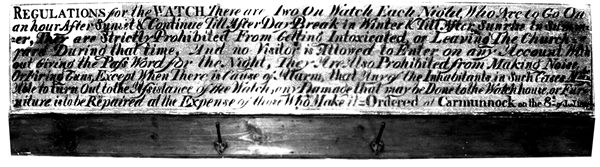 REGULATIONS for the WATCH, There are Two On Watch Each Night Who Are to Go On
an hour After Sunset & Continue Till After Day Break in Winter & Till After Sunrise in Summ-
er, are Strictly Prohibited From Getting Intoxicated, or Leaving The Church
During that time, And no Visitor is Allowed to Enter on any Account With
out Giving the Pass Word for the Night, They Are Also Prohibited from Making Noise
Or Firing Guns, Except When There is Cause of Alarm, that Any of the Inhabitants, in Such Cases
to Turn Out to the Assistance of the Watch, any Damage that may be Done to the Watch house, or Furn-
iture is to be Repaired at the Expense of those Who Make it = Ordered at Carmunnock on the 8th